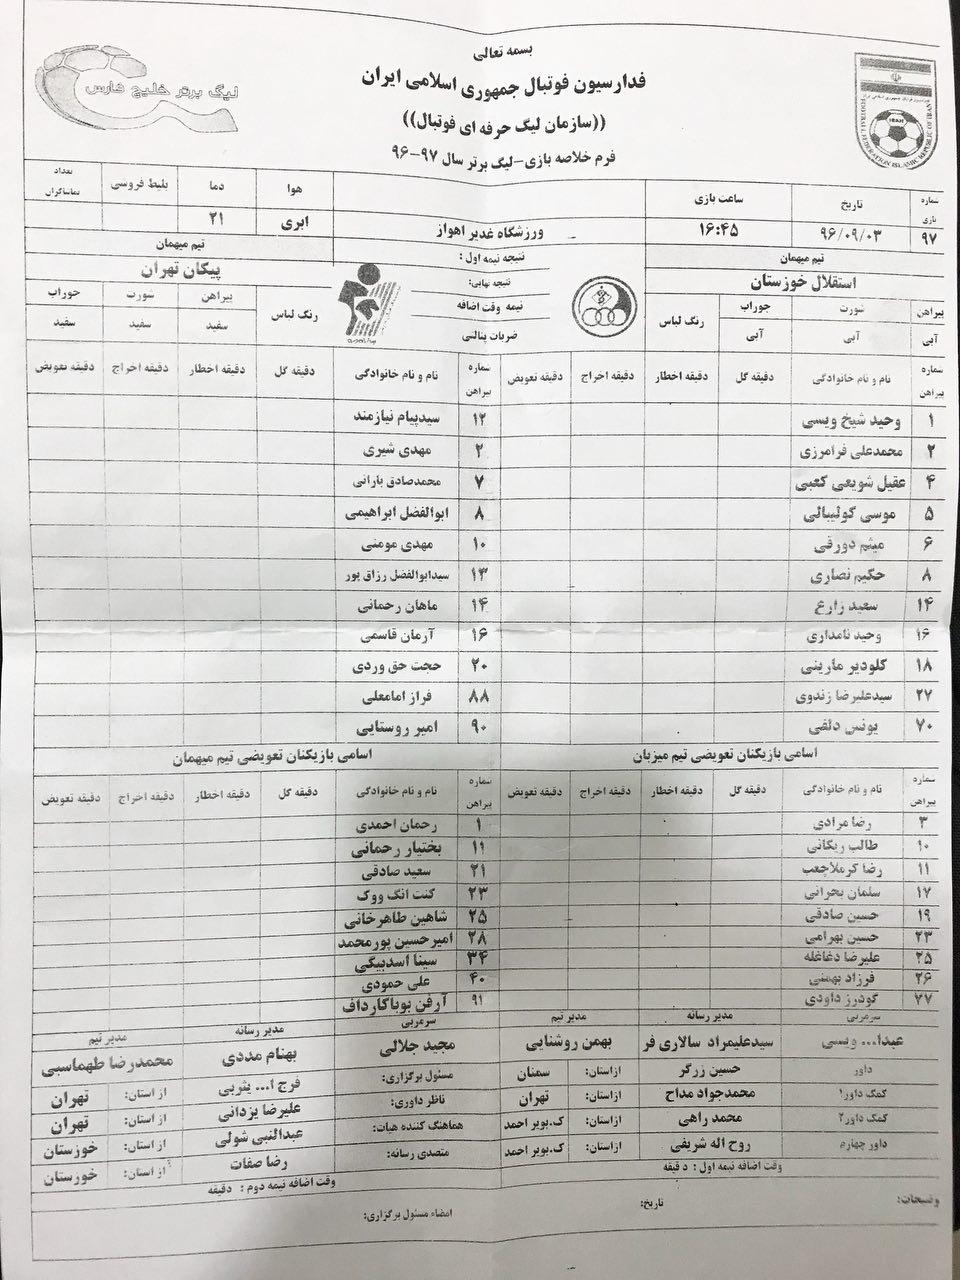 بسمه تعالی
فدراسیون فوتبال جمهوری اسلامی ایران
((سازمان لیگ حرفه ای فوتبال))
فرم خلاصه بازی-لیگ برتر سال ۹۷-۹۶
لیگ برتر خلیج فارس
FOOTBALL FEDERATION ISLAMIC REPUBLIC OF IRAN
IRAN
شماره بازی تاریخ ساعت بازی هوا دما بلیط فروسی تعداد تماشاگران
۹۷ ۹۶/۰۹/۰۳ ۱۶:۴۵ ورزشگاه غدیر اهواز ابری ۲۱
تیم میهمان نتیجه نیمه اول : تیم میهمان
استقلال خوزستان نتیجه نهایی: پیکان تهران
پیراهن شورت جوراب رنگ لباس نیمه وقت اضافه رنگ لباس پیراهن شورت جوراب
آبی آبی آبی ضربات پنالتی سفید سفید سفید
شماره پیراهن نام و نام خانوادگی دقیقه گل دقیقه اخطار دقیقه اخراج دقیقه تعویض شماره پیراهن نام و نام خانوادگی دقیقه گل دقیقه اخطار دقیقه اخراج دقیقه تعویض
۱ وحید شیخ ویسی ۱۲ سیدپیام نیازمند
۲ محمدعلی فرامرزی ۲ مهدی شیری
۴ عقیل شویعی کعبی ۷ محمدصادق بارانی
۵ موسی کولیبالی ۸ ابوالفضل ابراهیمی
۶ میثم دورقی ۱۰ مهدی مومنی
۸ حکیم نصاری ۱۳ سیدابوالفضل رزاق پور
۱۴ سعید زارع ۱۴ ماهان رحمانی
۱۶ وحید نامداری ۱۶ آرمان قاسمی
۱۸ کلودیر مارینی ۲۰ حجت حق وردی
۲۷ سیدعلیرضا زندوی ۸۸ فراز امامعلی
۷۰ یونس دلفی ۹۰ امیر روستایی
اسامی بازیکنان تعویضی تیم میزبان اسامی بازیکنان تعویضی تیم میهمان
شماره پیراهن نام و نام خانوادگی دقیقه گل دقیقه اخطار دقیقه اخراج دقیقه تعویض شماره پیراهن نام و نام خانوادگی دقیقه گل دقیقه اخطار دقیقه اخراج دقیقه تعویض
۳ رضا مرادی ۱ رحمان احمدی
۱۰ طالب ریکانی ۱۱ بختیار رحمانی
۱۱ رضا کرملاچعب ۲۱ سعید صادقی
۱۷ سلمان بحرانی ۲۳ کنت انگ ووک
۱۹ حسین صادقی ۲۵ شاهین طاهرخانی
۲۳ حسین بهرامی ۲۸ امیرحسین پورمحمد
۲۵ علیرضا دغاغله ۳۴ سینا اسدبیگی
۲۶ فرزاد بهمنی ۴۰ علی حمودی
۷۷ گودرز داودی ۹۱ آرفن بوباکارداف
سرمربی مدیر رسانه مدیر تیم سرمربی مدیر رسانه مدیر تیم
عبدا... ویسی سیدعلیمراد سالاری فر بهمن روشنایی مجید جلالی بهنام مددی محمدرضا طهماسبی
داور حسین زرگر ازاستان: سمنان مسئول برگزاری: فرج ا... یثربی از استان: تهران
کمک داور۱ محمدجواد مداح ازاستان: تهران ناظر داوری: علیرضا یزدانی از استان: تهران
کمک داور۲ محمد راهی ازاستان: ک.بویر احمد هماهنگ کننده هیات: عبدالنبی شولی از استان: خوزستان
داور چهارم روح اله شریفی ازاستان: ک.بویر احمد متصدی رسانه: رضا صفات از استان: خوزستان
وقت اضافه نیمه اول : دقیقه وقت اضافه نیمه دوم : دقیقه
توضیحات: تاریخ: امضاء مسئول برگزاری: